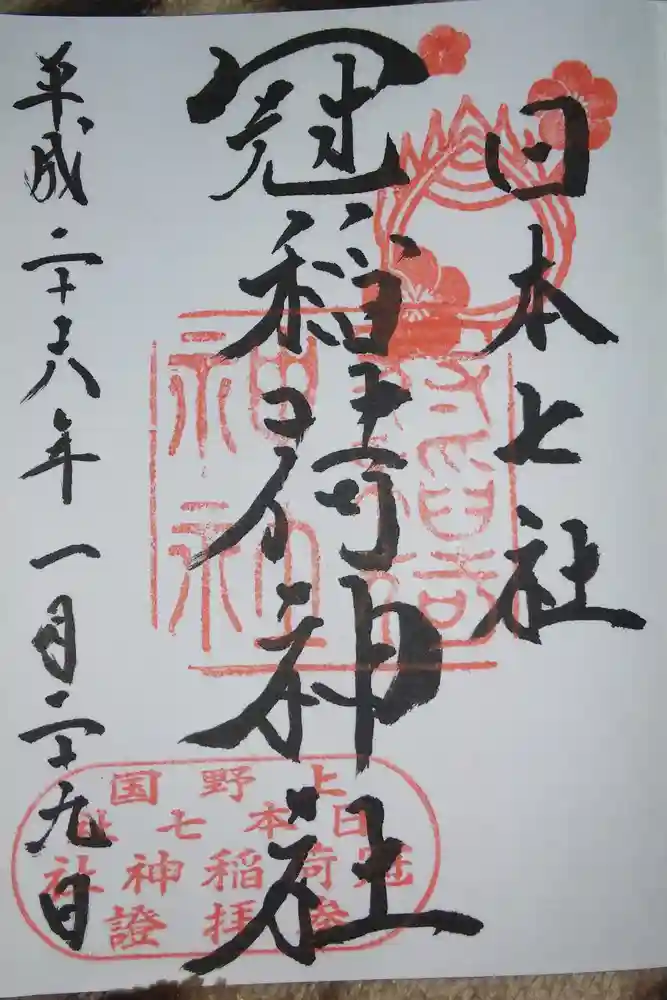 日本七社
冠稲荷神社
平成二十八年一月二十九日
上野国
日本七社
冠稲荷神社
参拝證